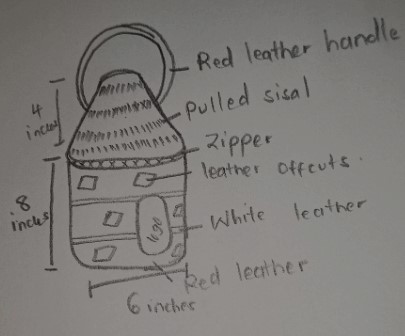 Red leather handle
4
inches
Pulled sisal
Zipper
leather offcuts.
8
inches
White leather
Red leather
6 inches